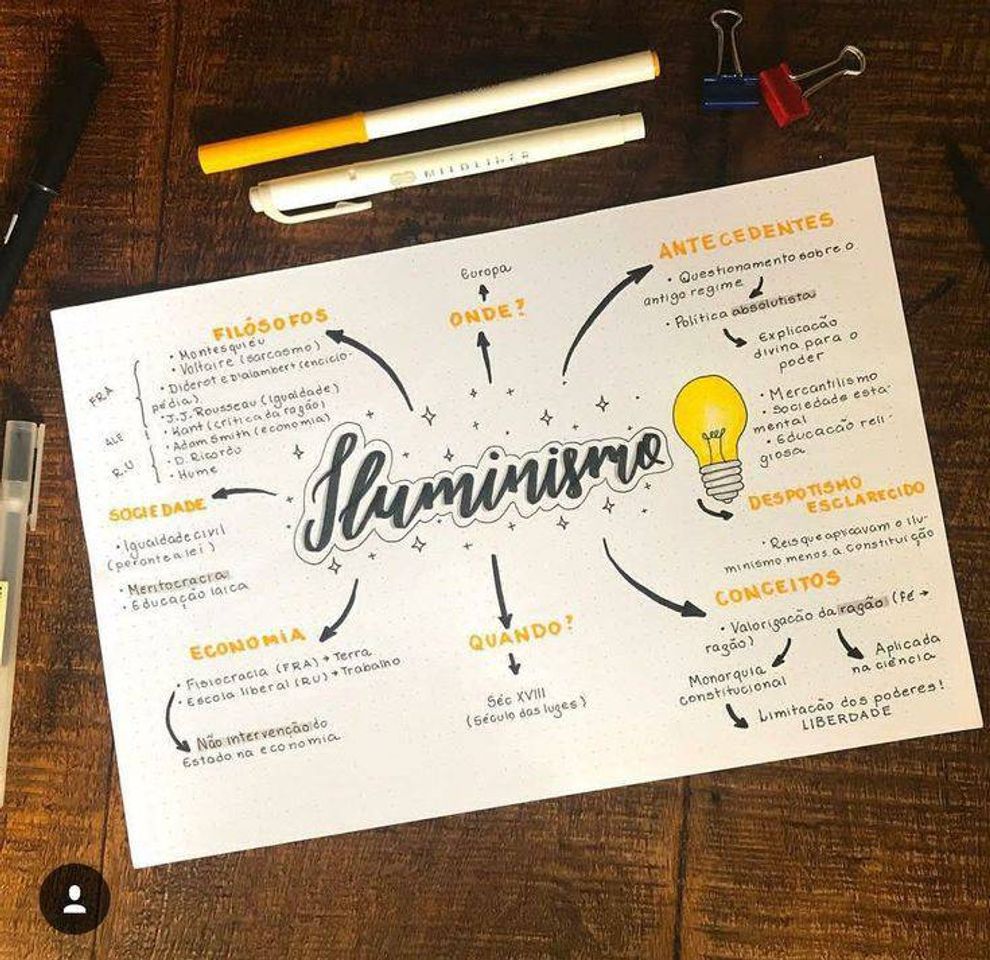 MILDLINER
Iluminismo
FILÓSOFOS
• Montesquieu
• Voltaire (sarcasmo)
• Diderot e Dialambert (enciclo-
pédia)
• J.J. Rousseau (igualdade)
• Kant (crítica da razão)
• Adam Smith (economia)
• D. Ricardo
• Hume
FRA
ALE
R.U
Europa
ONDE?
ANTECEDENTES
• Questionamento sobre o
antigo regime
• Política absolutista
Explicação
divina para o
poder
• Mercantilismo
• Sociedade esta-
mental
• Educação reli
giosa
SOCIEDADE
• Igualdade civil
(perante a lei)
• Meritocracia
• Educação laica
DESPOTISMO
ESCLARECIDO
• Reis que aplicavam o ilu-
minismo menos a constituição
ECONOMIA
• Fisiocracia (FRA) → Terra
• Escola liberal (RU) → Trabalho
Não intervenção do
Estado na economia
QUANDO?
Séc XVIII
(século das luzes)
CONCEITOS
• Valorização da razão (fé →
razão)
Monarquia
constitucional
Aplicada
na ciência
Limitação dos poderes!
LIBERDADE